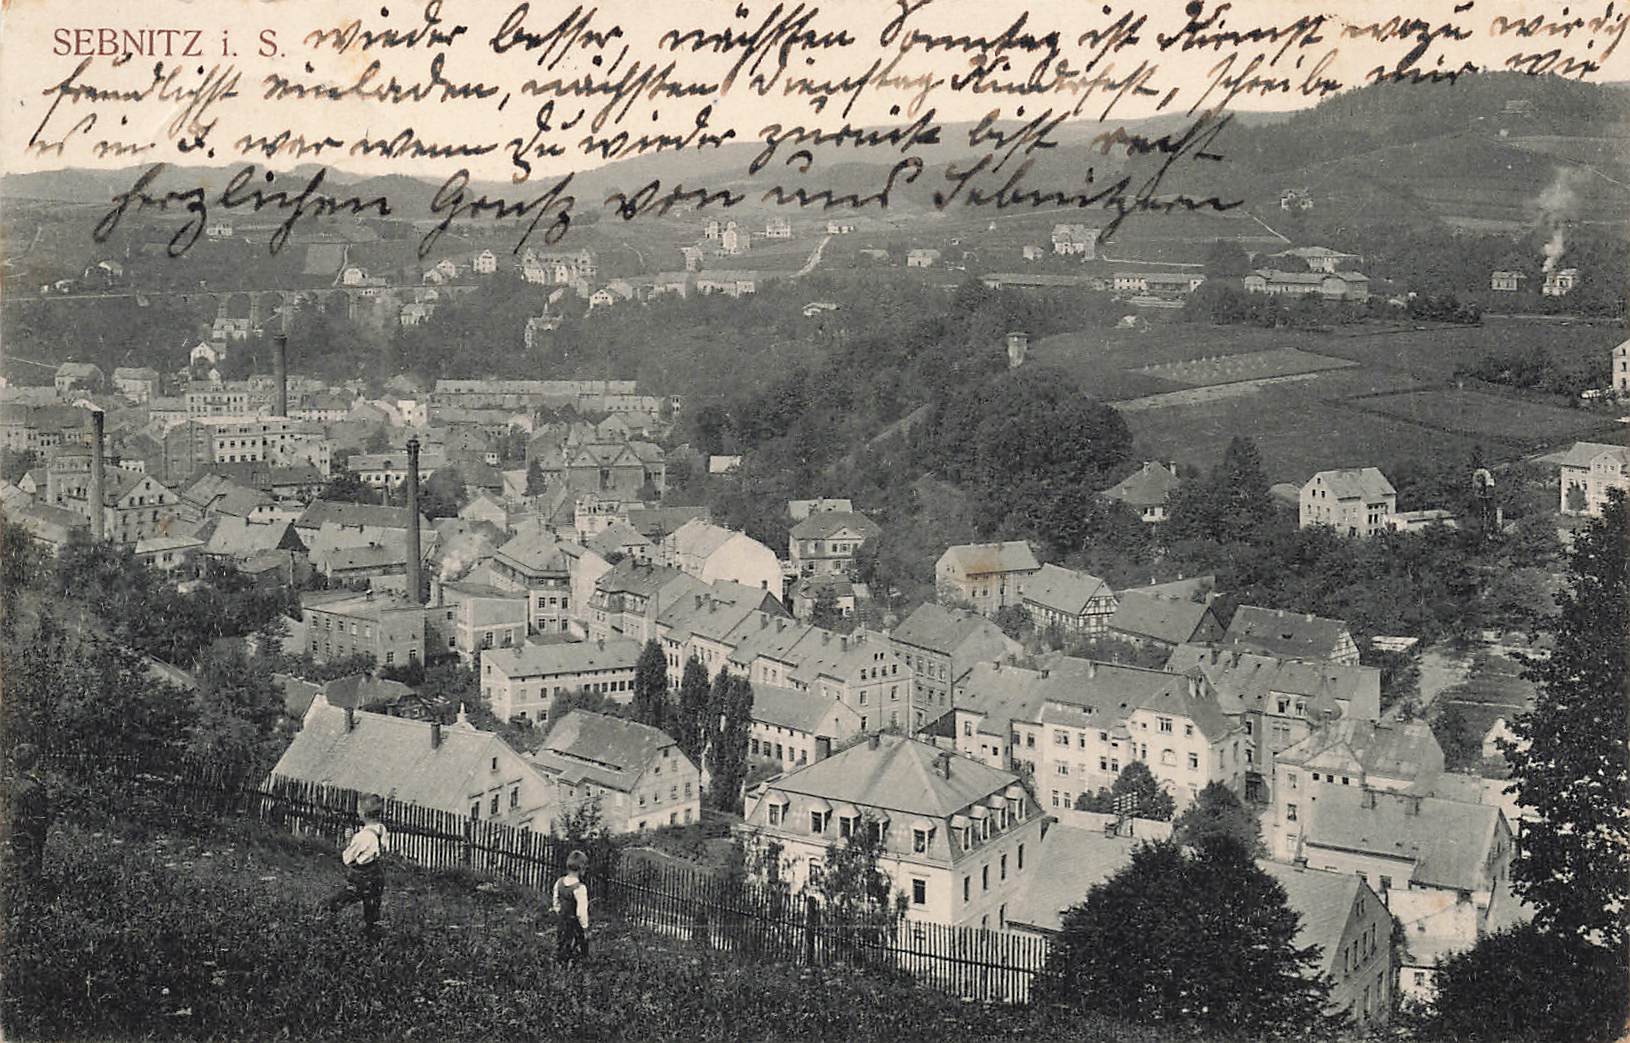 SEBNITZ i. S. wieder besser, nächsten Sonntag ist Dienst wozu wir dich
freundlichst einladen, nächsten Dienstag Kinderfest, schreibe mir wie
es in J. war wenn Du wieder zurück bist recht
herzlichen Gruß von uns Sebnitzern